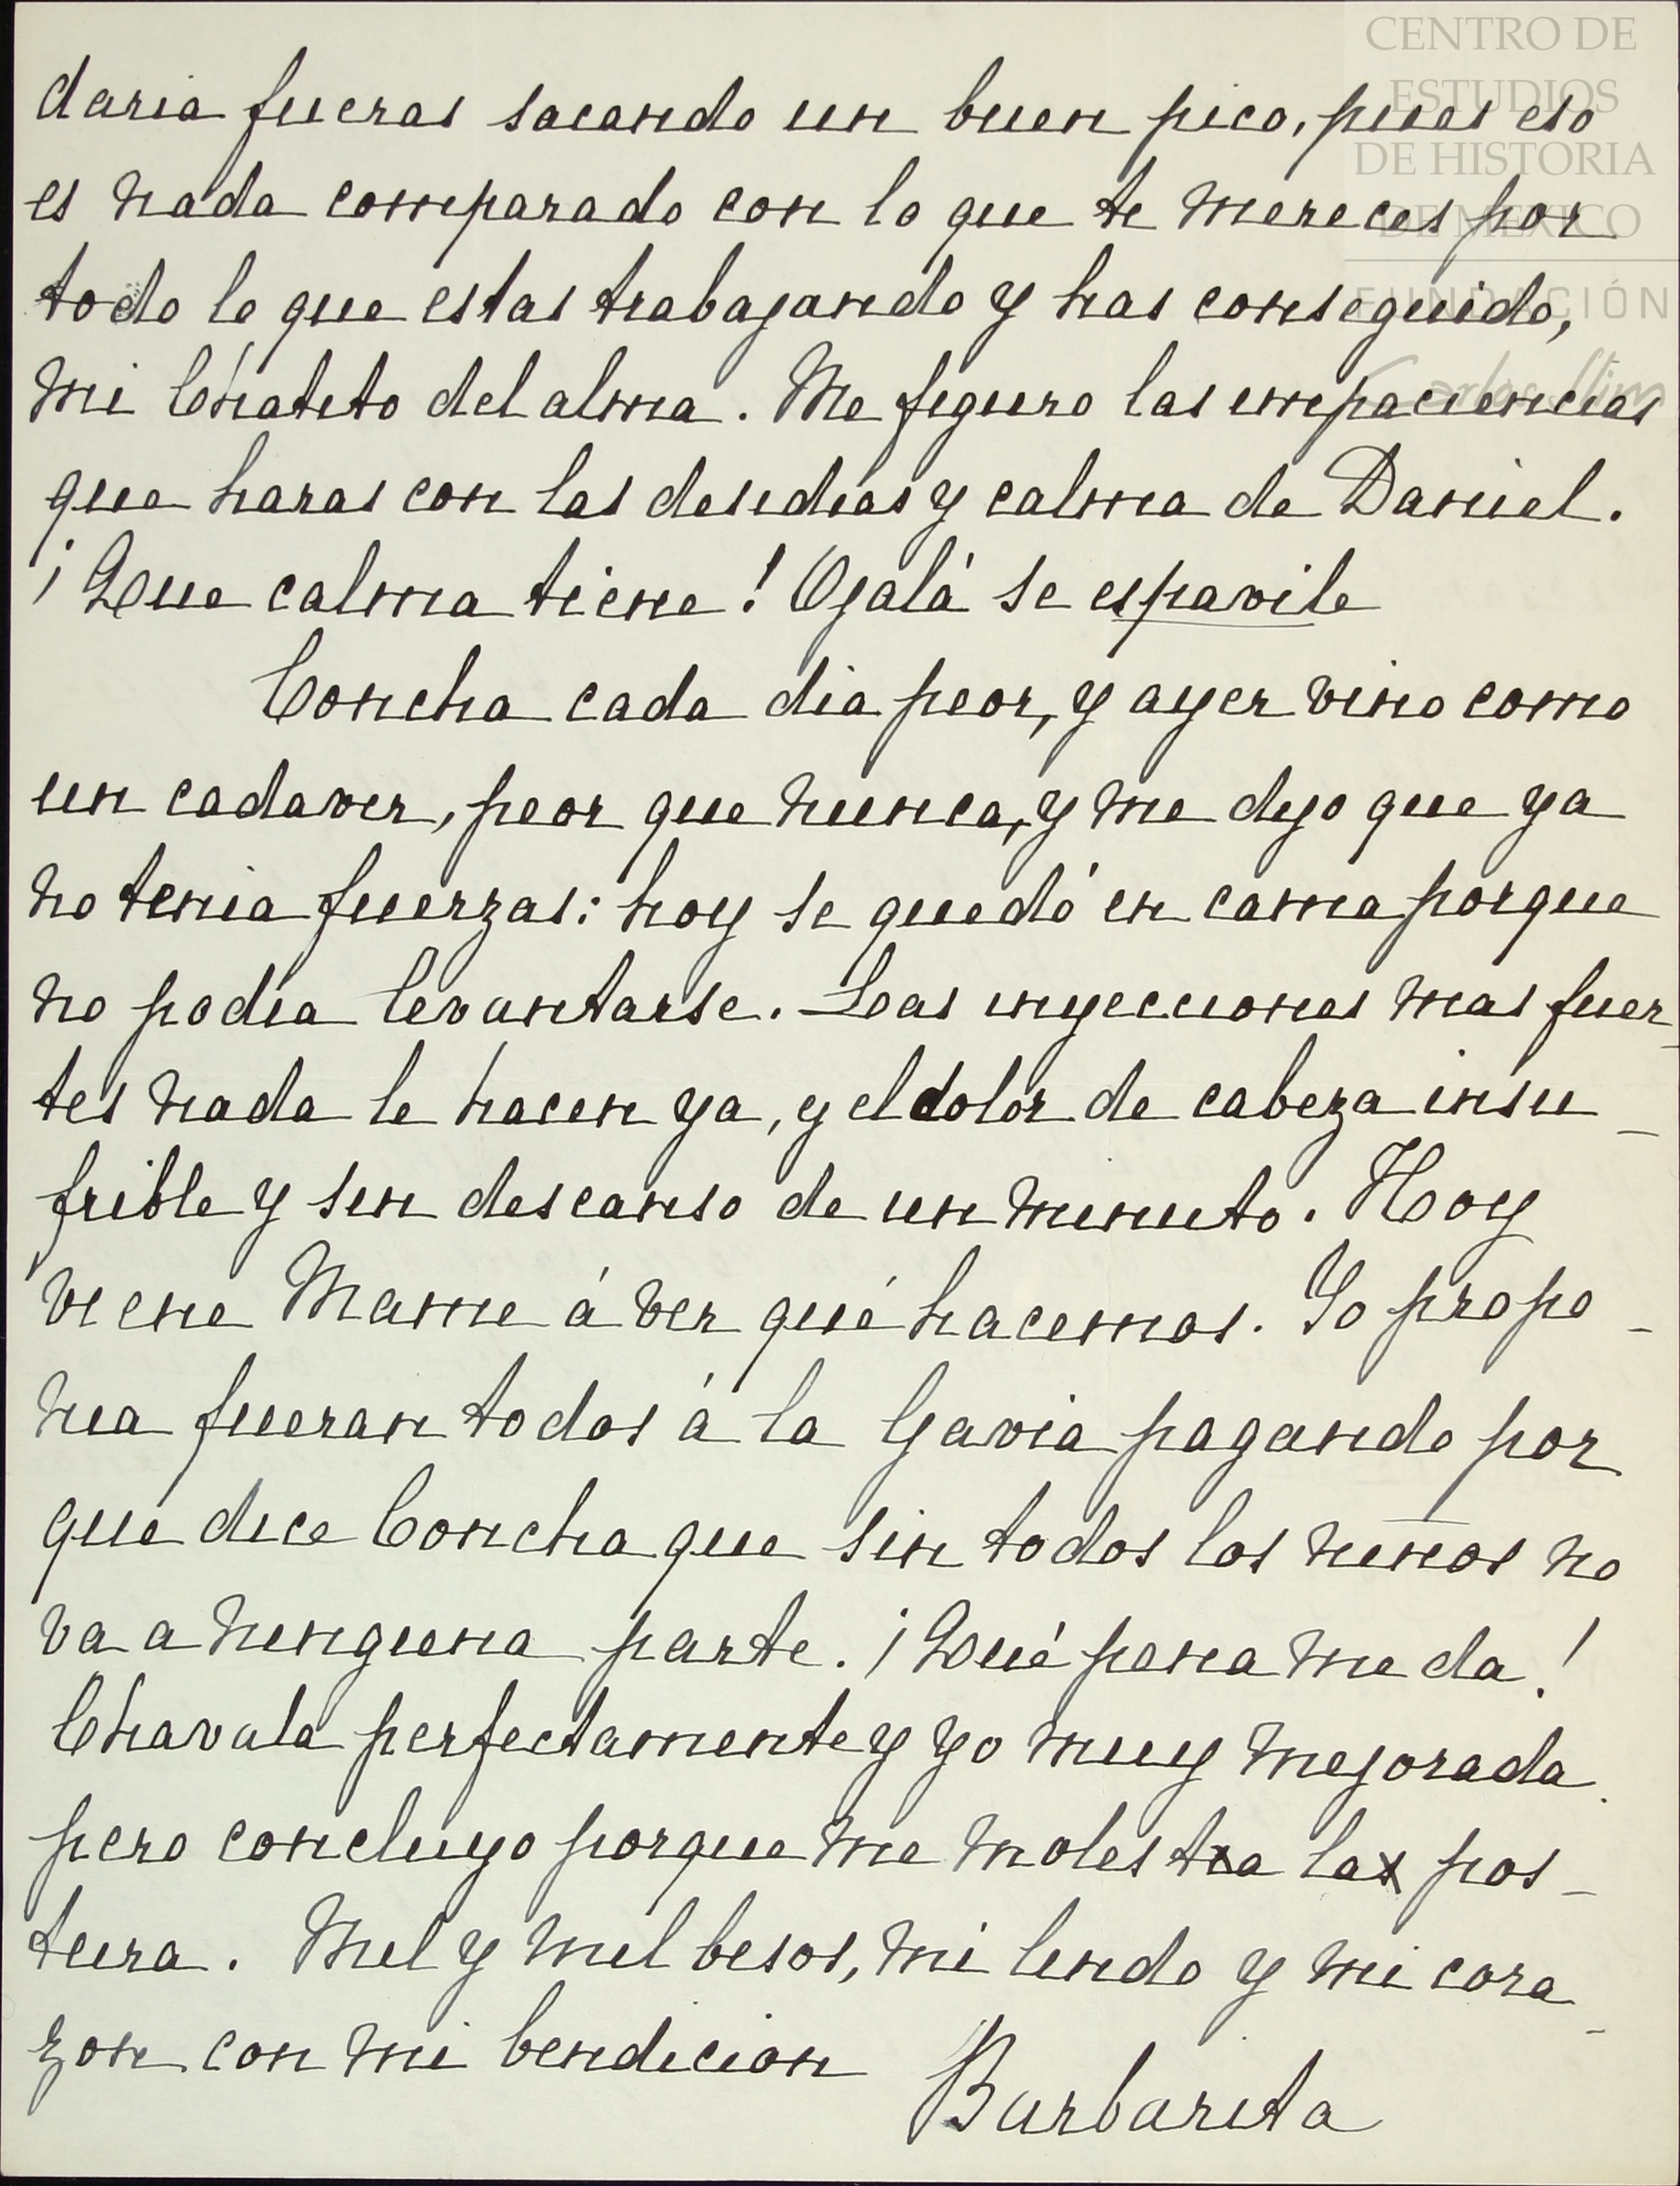 CENTRO DE
ESTUDIOS
DE HISTORIA
DE MEXICO
FUNDACIÓN
Carlos Slim
daria fueras sacando un buen pico, pues eso
es nada comparado con lo que te mereces por
todo lo que estas trabajando y has conseguido,
mi Chatito del alma. Me figuro las impaciencias
que haras con las desidias y calma de Daniel.
¡Que calma tiene! Ojalá se espavile
Concha cada dia peor, y ayer vino como
un cadaver, peor que nunca, y me dijo que ya
no tenia fuerzas: hoy se quedó en cama porque
no podia levantarse. Las inyecciones mas fuer-
tes nada le hacen ya, y el dolor de cabeza insu-
frible y sin descanso de un minuto. Hoy
viene Mame á ver qué hacemos. Yo propo-
nia fueran todos á la Gavia pagando por
que dice Concha que sin todos los niños no
va a ninguna parte. ¡Qué pena me da!
Chavala perfectamente y yo muy mejorada.
pero concluyo porque me molesta la pos-
tura. Mil y mil besos, mi lindo y mi cora-
zon con mi bendicion
Barbarita